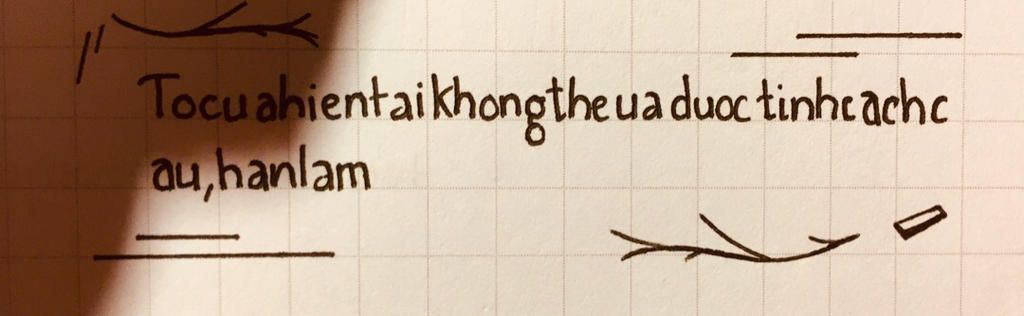 Tocuahientaikhongtheuaduoctinhcachc
au,hanlam